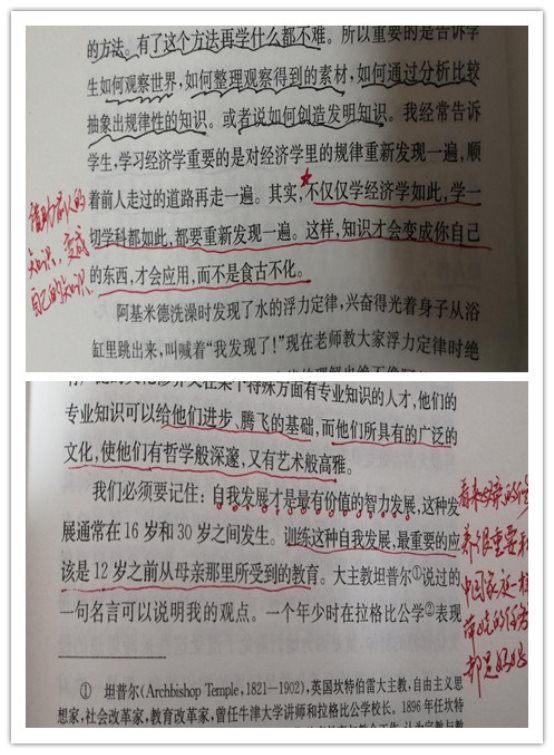 的方法。有了这个方法再学什么都不难。所以重要的是告诉学
生如何观察世界,如何整理观察得到的素材,如何通过分析比较
抽象出规律性的知识。或者说如何创造发明知识。我经常告诉
学生,学习经济学重要的是对经济学里的规律重新发现一遍,顺
着前人走过的道路再走一遍。其实,不仅仅学经济学如此,学一
切学科都如此,都要重新发现一遍。这样,知识才会变成你自己
的东西,才会应用,而不是食古不化。
借助前人的
知识,变成
自己的知识。
阿基米德洗澡时发现了水的浮力定律,兴奋得光着身子从浴
缸里跳出来,叫喊着“我发现了!”现在老师教大家浮力定律时绝
在某个特殊方面有专业知识的人才,他们的
专业知识可以给他们进步、腾飞的基础,而他们所具有的广泛的
文化,使他们有哲学般深邃,又有艺术般高雅。
我们必须要记住:自我发展才是最有价值的智力发展,这种发
展通常在16岁和30岁之间发生。训练这种自我发展,最重要的应
该是12岁之前从母亲那里所受到的教育。大主教坦普尔①说过的
一句名言可以说明我的观点。一个年少时在拉格比公学②表现
看来母亲的
养很重要
中国家庭一般
的任务
都是妈妈
① 坦普尔(Archbishop Temple,1821—1902),英国坎特伯雷大主教,自由主义思
想家,社会改革家,教育改革家,曾任牛津大学讲师和拉格比公学校长。1896年任坎特